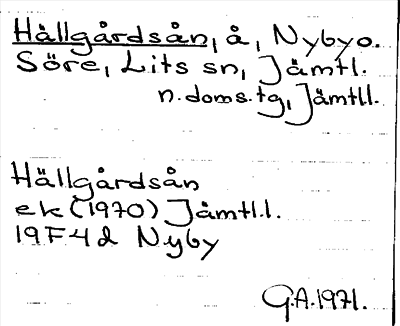 Hällgårdsån, å, Nyby o.
Söre, Lits sn, Jämtl.
n.doms.tg, Jämtll.
Hällgårdsån
ek (1970) Jämtl.l.
19F4d Nyby
G.A.1971.